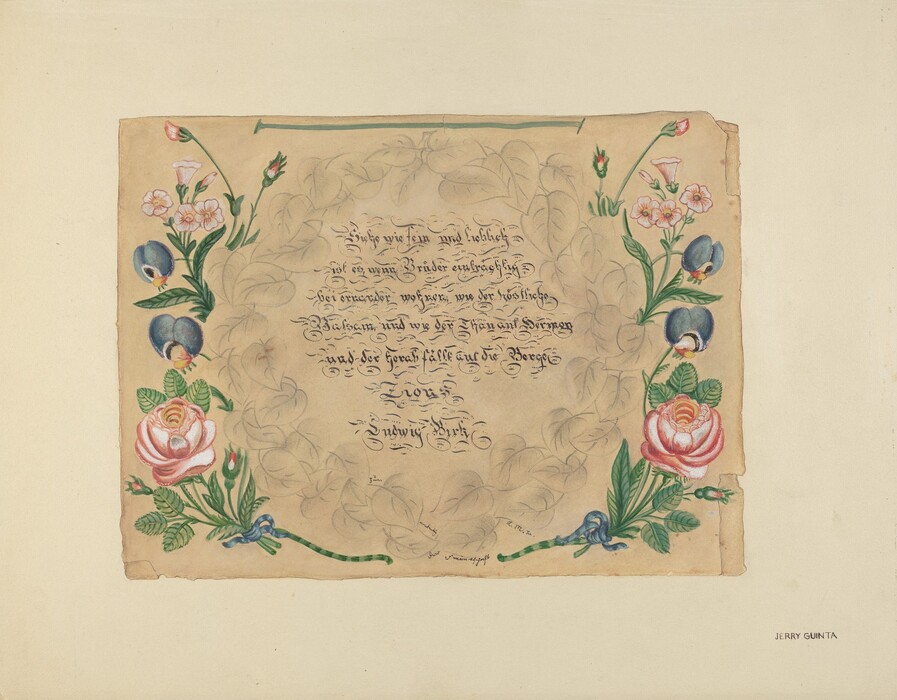 Siehe wie fein und lieblich
ist es wenn Brüder einträchtig
bei einander wohnen, wie der köstliche
Balsam, und wie der Thau auf Hermon
und der herab fällt auf die Berge
Zions
Ludwig
der Freundschaft
JERRY GUINTA